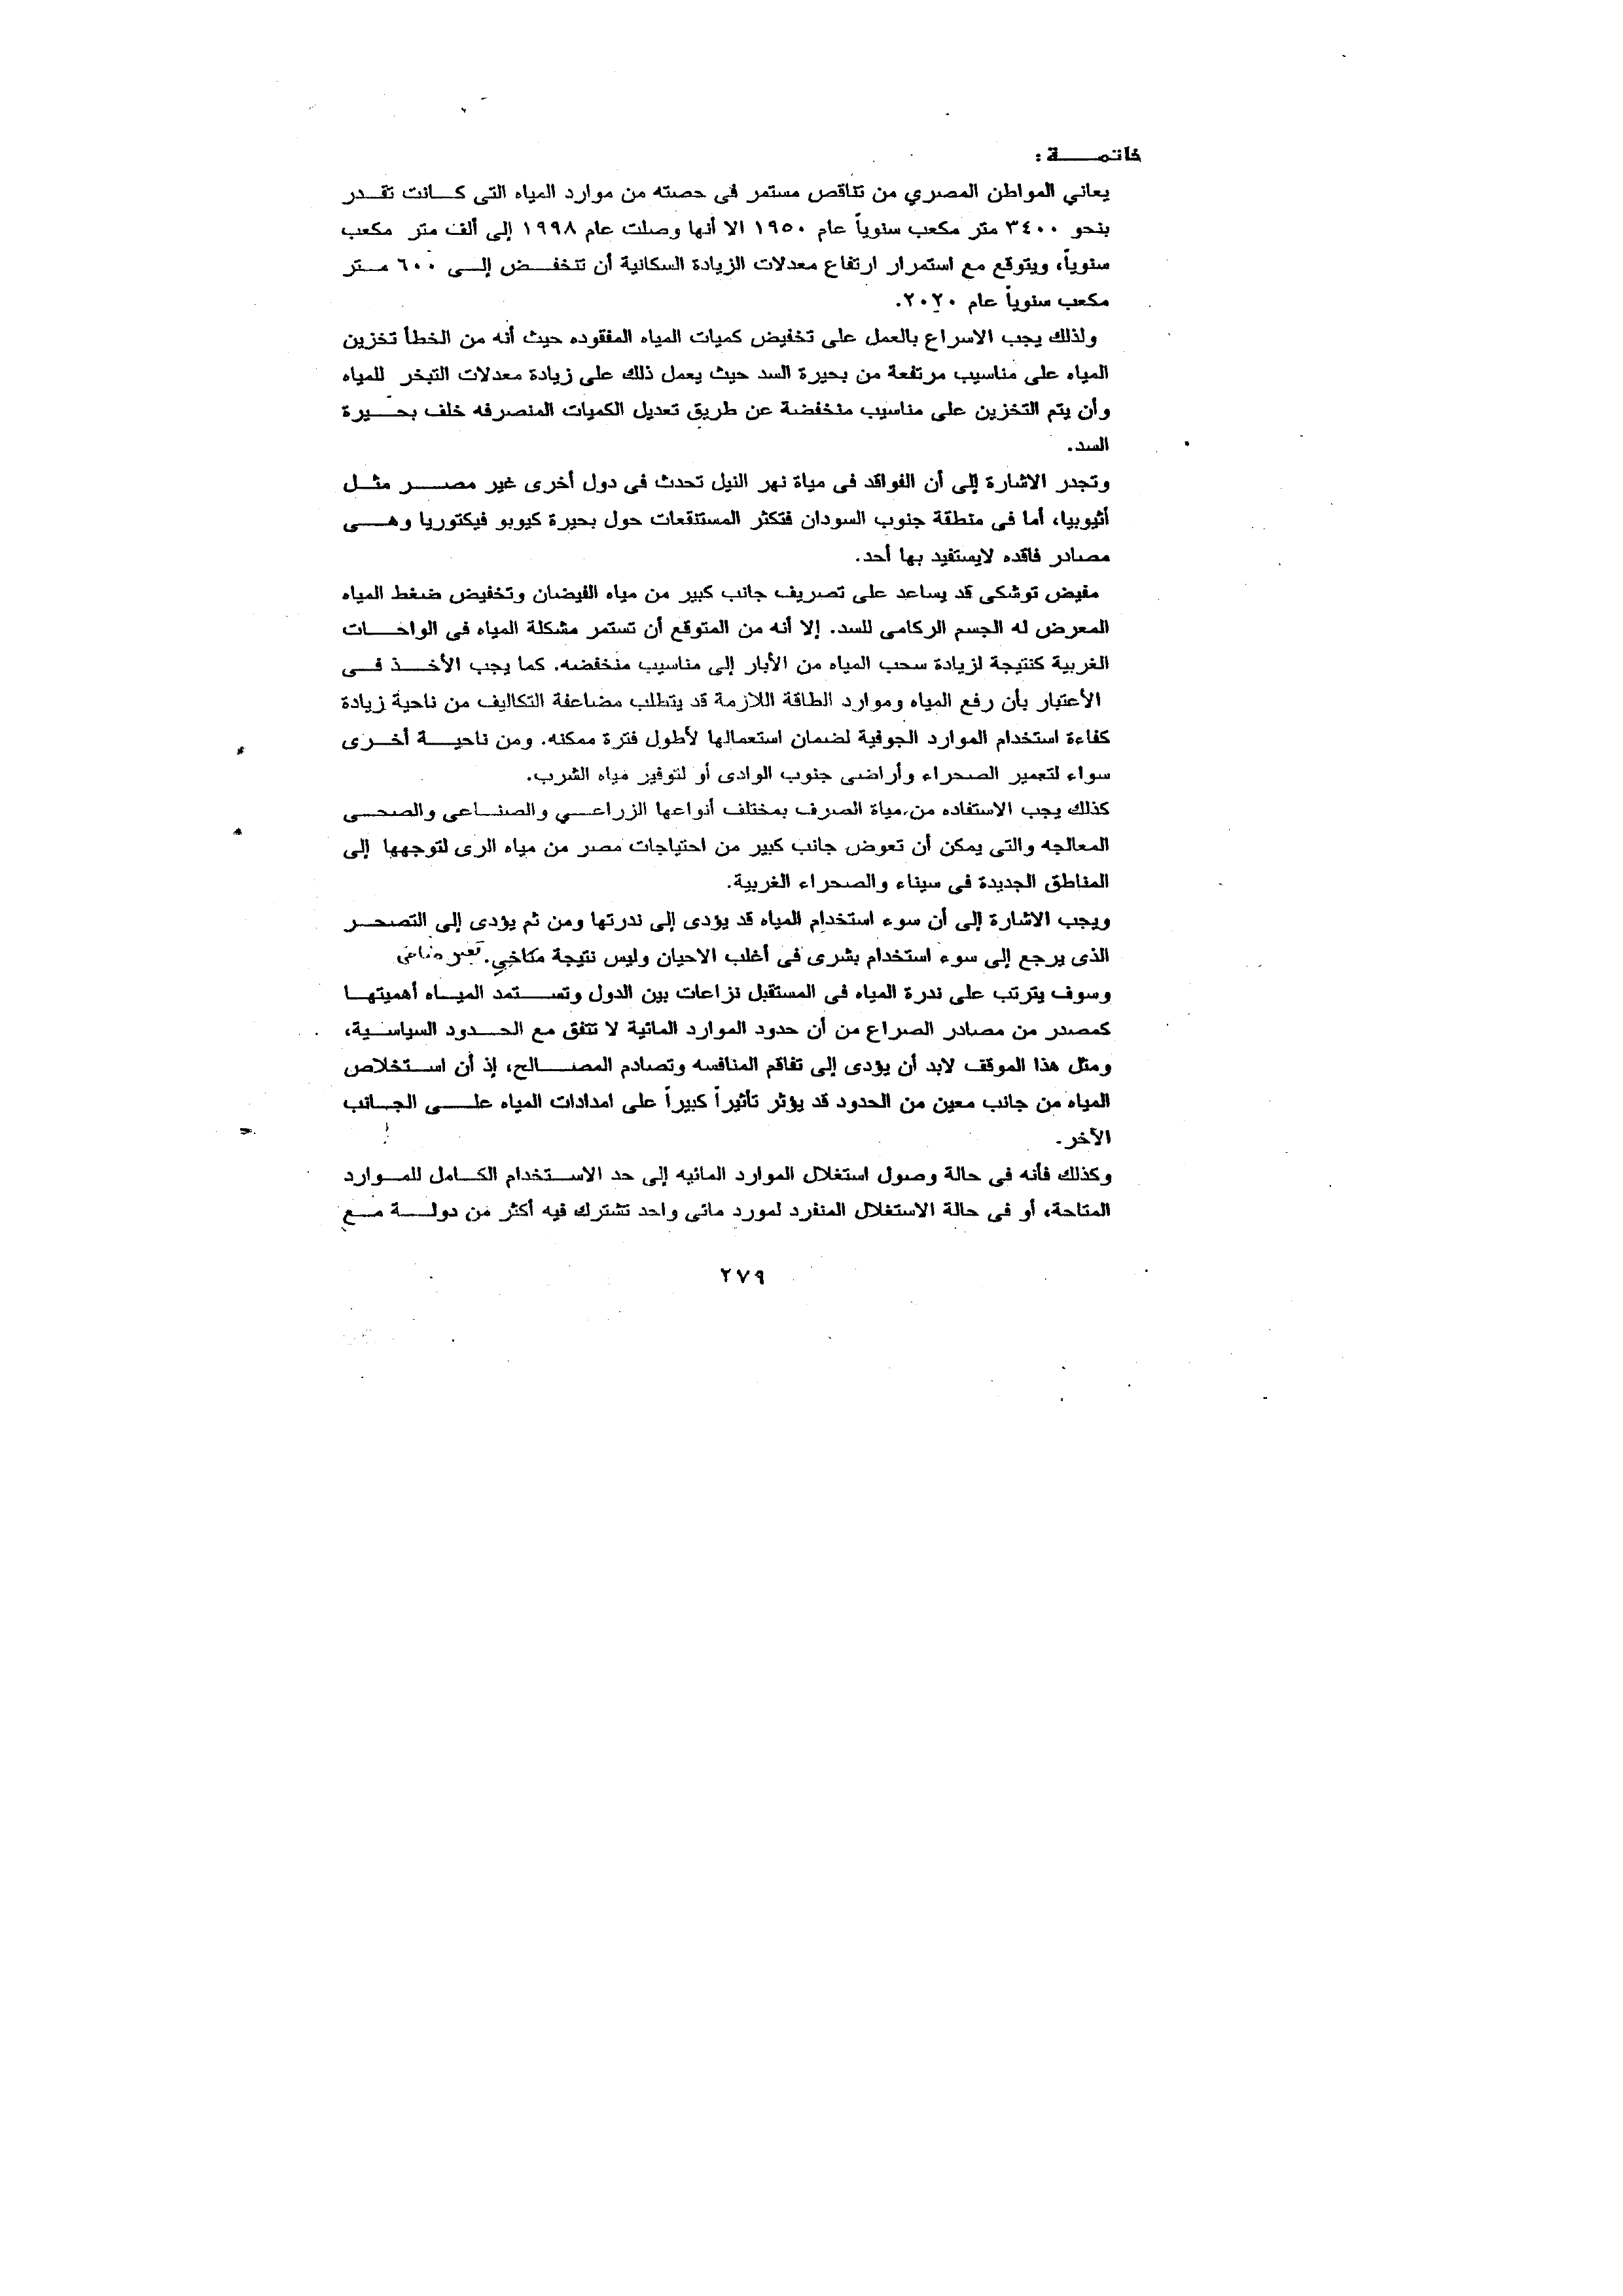 خاتمـــــة :
يعاني المواطن المصري من تناقص مستمر فى حصته من موارد المياه التى كـــانت تقـــدر
بنحو ٣٤٠٠ متر مكعب سنوياً عام ١٩٥٠ الا أنها وصلت عام ١٩٩٨ إلى ألف متر مكعب
سنوياً، ويتوقع مع استمرار ارتفاع معدلات الزيادة السكانية أن تنخفـــض إلـــى ٦٠٠ متـــر
مكعب سنوياً عام ٢٠٢٠.
ولذلك يجب الاسراع بالعمل على تخفيض كميات المياه المفقوده حيث أنه من الخطأ تخزين
المياه على مناسيب مرتفعة من بحيرة السد حيث يعمل ذلك على زيادة معدلات التبخر للمياه
وأن يتم التخزين على مناسيب منخفضة عن طريق تعديل الكميات المنصرفه خلف بحـــيرة
السد.
وتجدر الاشارة إلى أن الفواقد فى مياة نهر النيل تحدث فى دول أخرى غير مصـــر مثـــل
أثيوبيا، أما فى منطقة جنوب السودان فتكثر المستنقعات حول بحيرة كيوبو فيكتوريا وهـــى
مصادر فاقده لايستفيد بها أحد.
مفيض توشكى قد يساعد على تصريف جانب كبير من مياه الفيضان وتخفيض ضغط المياه
المعرض له الجسم الركامى للسد. إلا أنه من المتوقع أن تستمر مشكلة المياه فى الواحـــات
الغربية كنتيجة لزيادة سحب المياه من الأبار إلى مناسيب منخفضه. كما يجب الأخـــذ فـــى
الأعتبار بأن رفع المياه وموارد الطاقة اللازمة قد يتطلب مضاعفة التكاليف من ناحية زيادة
كفاءة استخدام الموارد الجوفية لضمان استعمالها لأطول فترة ممكنه. ومن ناحيـــة أخـــرى
سواء لتعمير الصحراء وأراضى جنوب الوادى أو لتوفير مياه الشرب.
كذلك يجب الاستفاده من مياة الصرف بمختلف أنواعها الزراعـــي والصنـــاعى والصحـــى
المعالجه والتى يمكن أن تعوض جانب كبير من احتياجات مصر من مياه الرى لتوجهها إلى
المناطق الجديدة فى سيناء والصحراء الغربية.
ويجب الاشارة إلى أن سوء استخدام المياه قد يؤدى إلى ندرتها ومن ثم يؤدى إلى التصحـــر
الذى يرجع إلى سوء استخدام بشرى فى أغلب الاحيان وليس نتيجة
وسوف يترتب على ندرة المياه فى المستقبل نزاعات بين الدول وتســـتمد الميـــاه أهميتهـــا
كمصدر من مصادر الصراع من أن حدود الموارد المائية لا تتفق مع الحـــدود السياســـية،
ومثل هذا الموقف لابد أن يؤدى إلى تفاقم المنافسه وتصادم المصـــالح، إذ أن اســـتخلاص
المياه من جانب معين من الحدود قد يؤثر تأثيراً كبيراً على امدادات المياه علـــى الجـــانب
الآخر.
وكذلك فأنه فى حالة وصول استغلال الموارد المائيه إلى حد الاســـتخدام الكـــامل للمـــوارد
المتاحة، أو فى حالة الاستغلال المنفرد لمورد مائى واحد تشترك فيه أكثر من دولـــة مـــع
٢٧٩